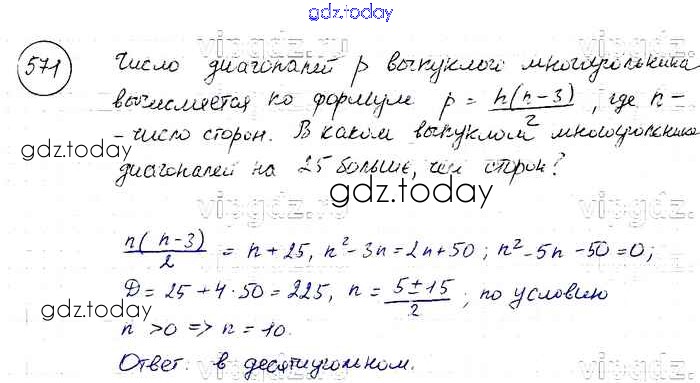 gdz.today
571
Число диагоналей p выпуклого многоугольника
вычисляется по формуле p = n(n-3)/2, где n -
- число сторон. В каком выпуклом многоугольнике
gdz.today
диагоналей на 25 больше, чем сторон?
gdz.today
n(n-3)/2 = n + 25, n² - 3n = 2n + 50; n² - 5n - 50 = 0;
D = 25 + 4·50 = 225, n = 5±15/2; по условию
gdz.today
n > 0 => n = 10.
Ответ: в десятиугольном.
gdz.today